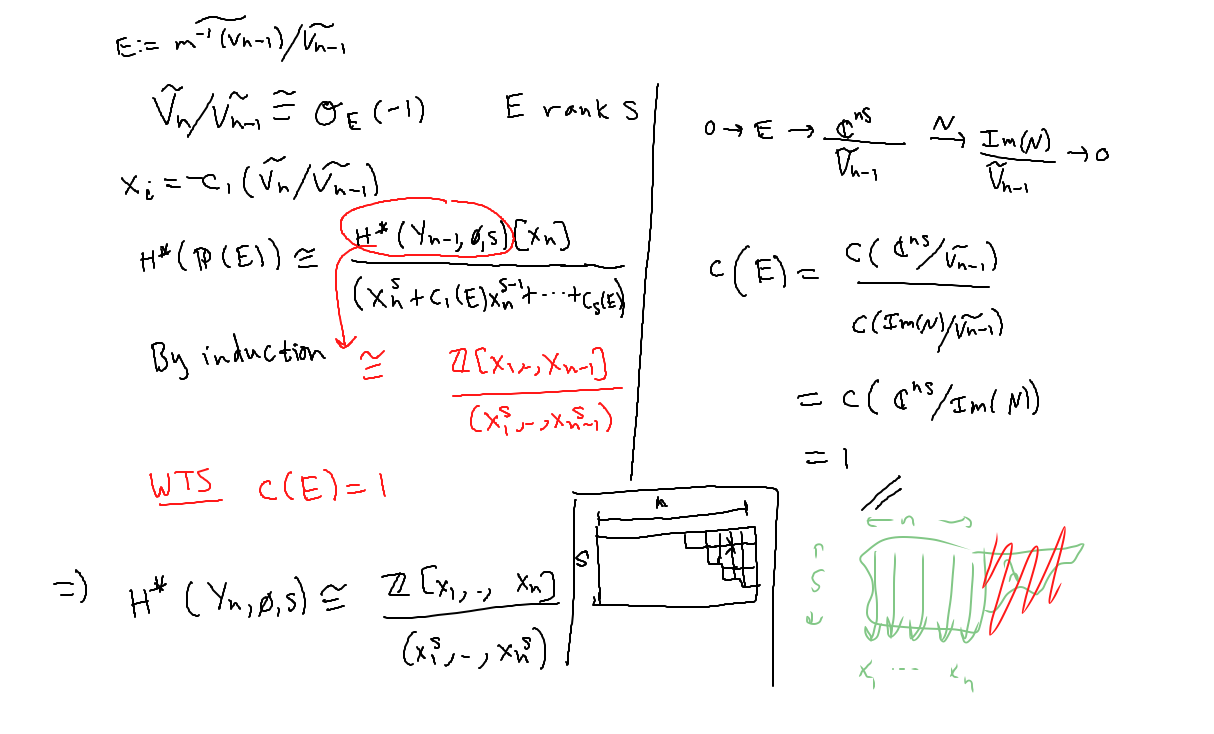 E := m⁻¹(Ṽₙ₋₁)/Ṽₙ₋₁
Ṽₙ/Ṽₙ₋₁ ≅ O_E(-1)    E rank S
xᵢ = -c₁(Ṽₙ/Ṽₙ₋₁)
H*(ℙ(E)) ≅ H*(Yₙ₋₁,ø,s)[xₙ] / (xₙˢ + c₁(E)xₙˢ⁻¹ + ··· + cₛ(E))
By induction ≅ ℤ[x₁,..,xₙ₋₁] / (x₁ˢ,..,xₙ₋₁ˢ)
WTS c(E) = 1
=> H*(Yₙ,ø,s) ≅ ℤ[x₁,.., xₙ] / (x₁ˢ,..,xₙˢ)
0 → E → ℂⁿˢ/Ṽₙ₋₁ →ᴺ Im(N)/Ṽₙ₋₁ → 0
c(E) = c(ℂⁿˢ/Ṽₙ₋₁) / c(Im(N)/Ṽₙ₋₁)
= c(ℂⁿˢ/Im(N))
= 1
S
← n →
S
x₁ ··· xₙ